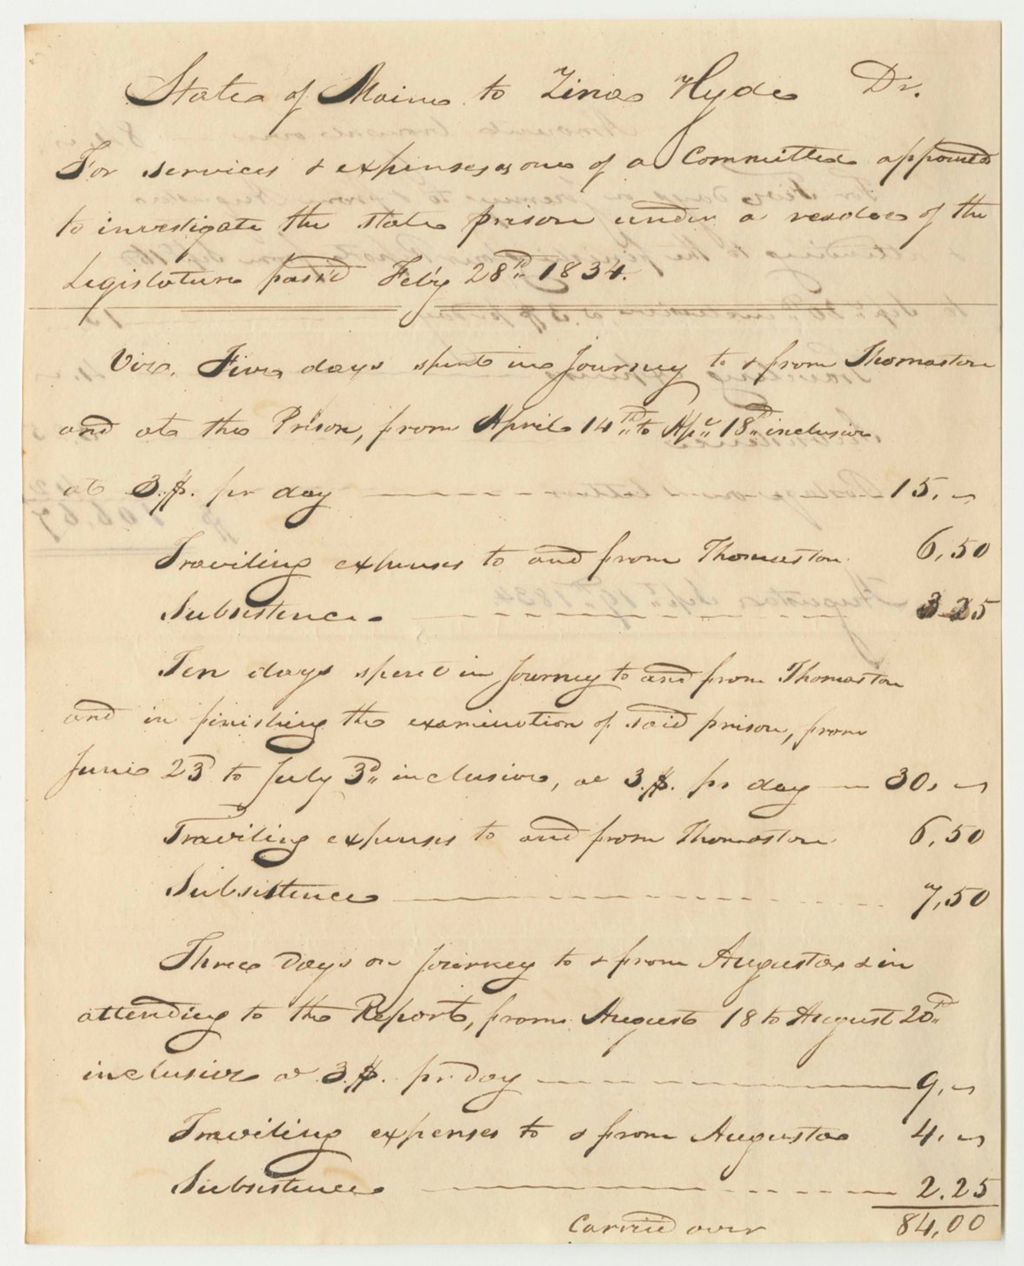 State of Maine to Zina Hyde Dr.
For services & expenses as one of a Committee appointed
to investigate the state prison under a resolve of the
Legislature pass'd Feb'y 28th 1834.
Viz. Five days spent in Journey to & from Thomaston
and at the Prison, from April 14th to Apl 18th inclusive
at 3.$. pr day 15.
Traviling expenses to and from Thomaston 6,50
Subsistence 3 25
Ten days spent in Journey to and from Thomaston
and in finishing the examination of said prison, from
June 23d to July 3d inclusive, at 3.$. pr day 30,
Traviling expenses to and from Thomaston 6,50
Subsistence 7,50
Three Days on Journey to & from Augusta & in
attending to the Report, from August 18 to August 20th
inclusive at 3.$. pr. day 9,
Traviling expenses to & from Augusta 4.
Subsistence 2.25
Carried over 84,00